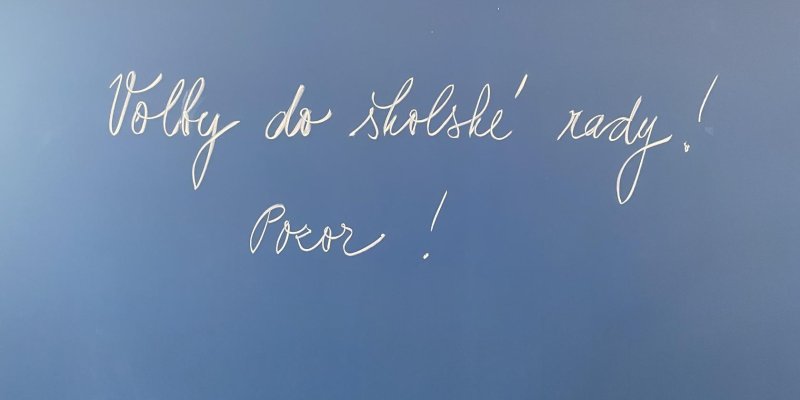 Volby do školské rady!
Pozor!